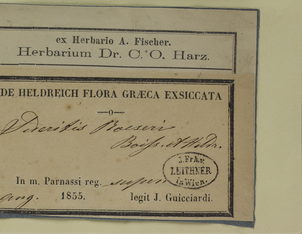 ex Herbario A. Fischer.
Herbarium Dr. C. O. Harz.
DE HELDREICH FLORA GRÆCA EXSICCATA
—o—
Sideritis Roeseri
Boiss. et Heldr.
J. Frh. v.
LEITHNER
in Wien.
In m. Parnassi reg.
aug. 1855. legit J. Guicciardi.